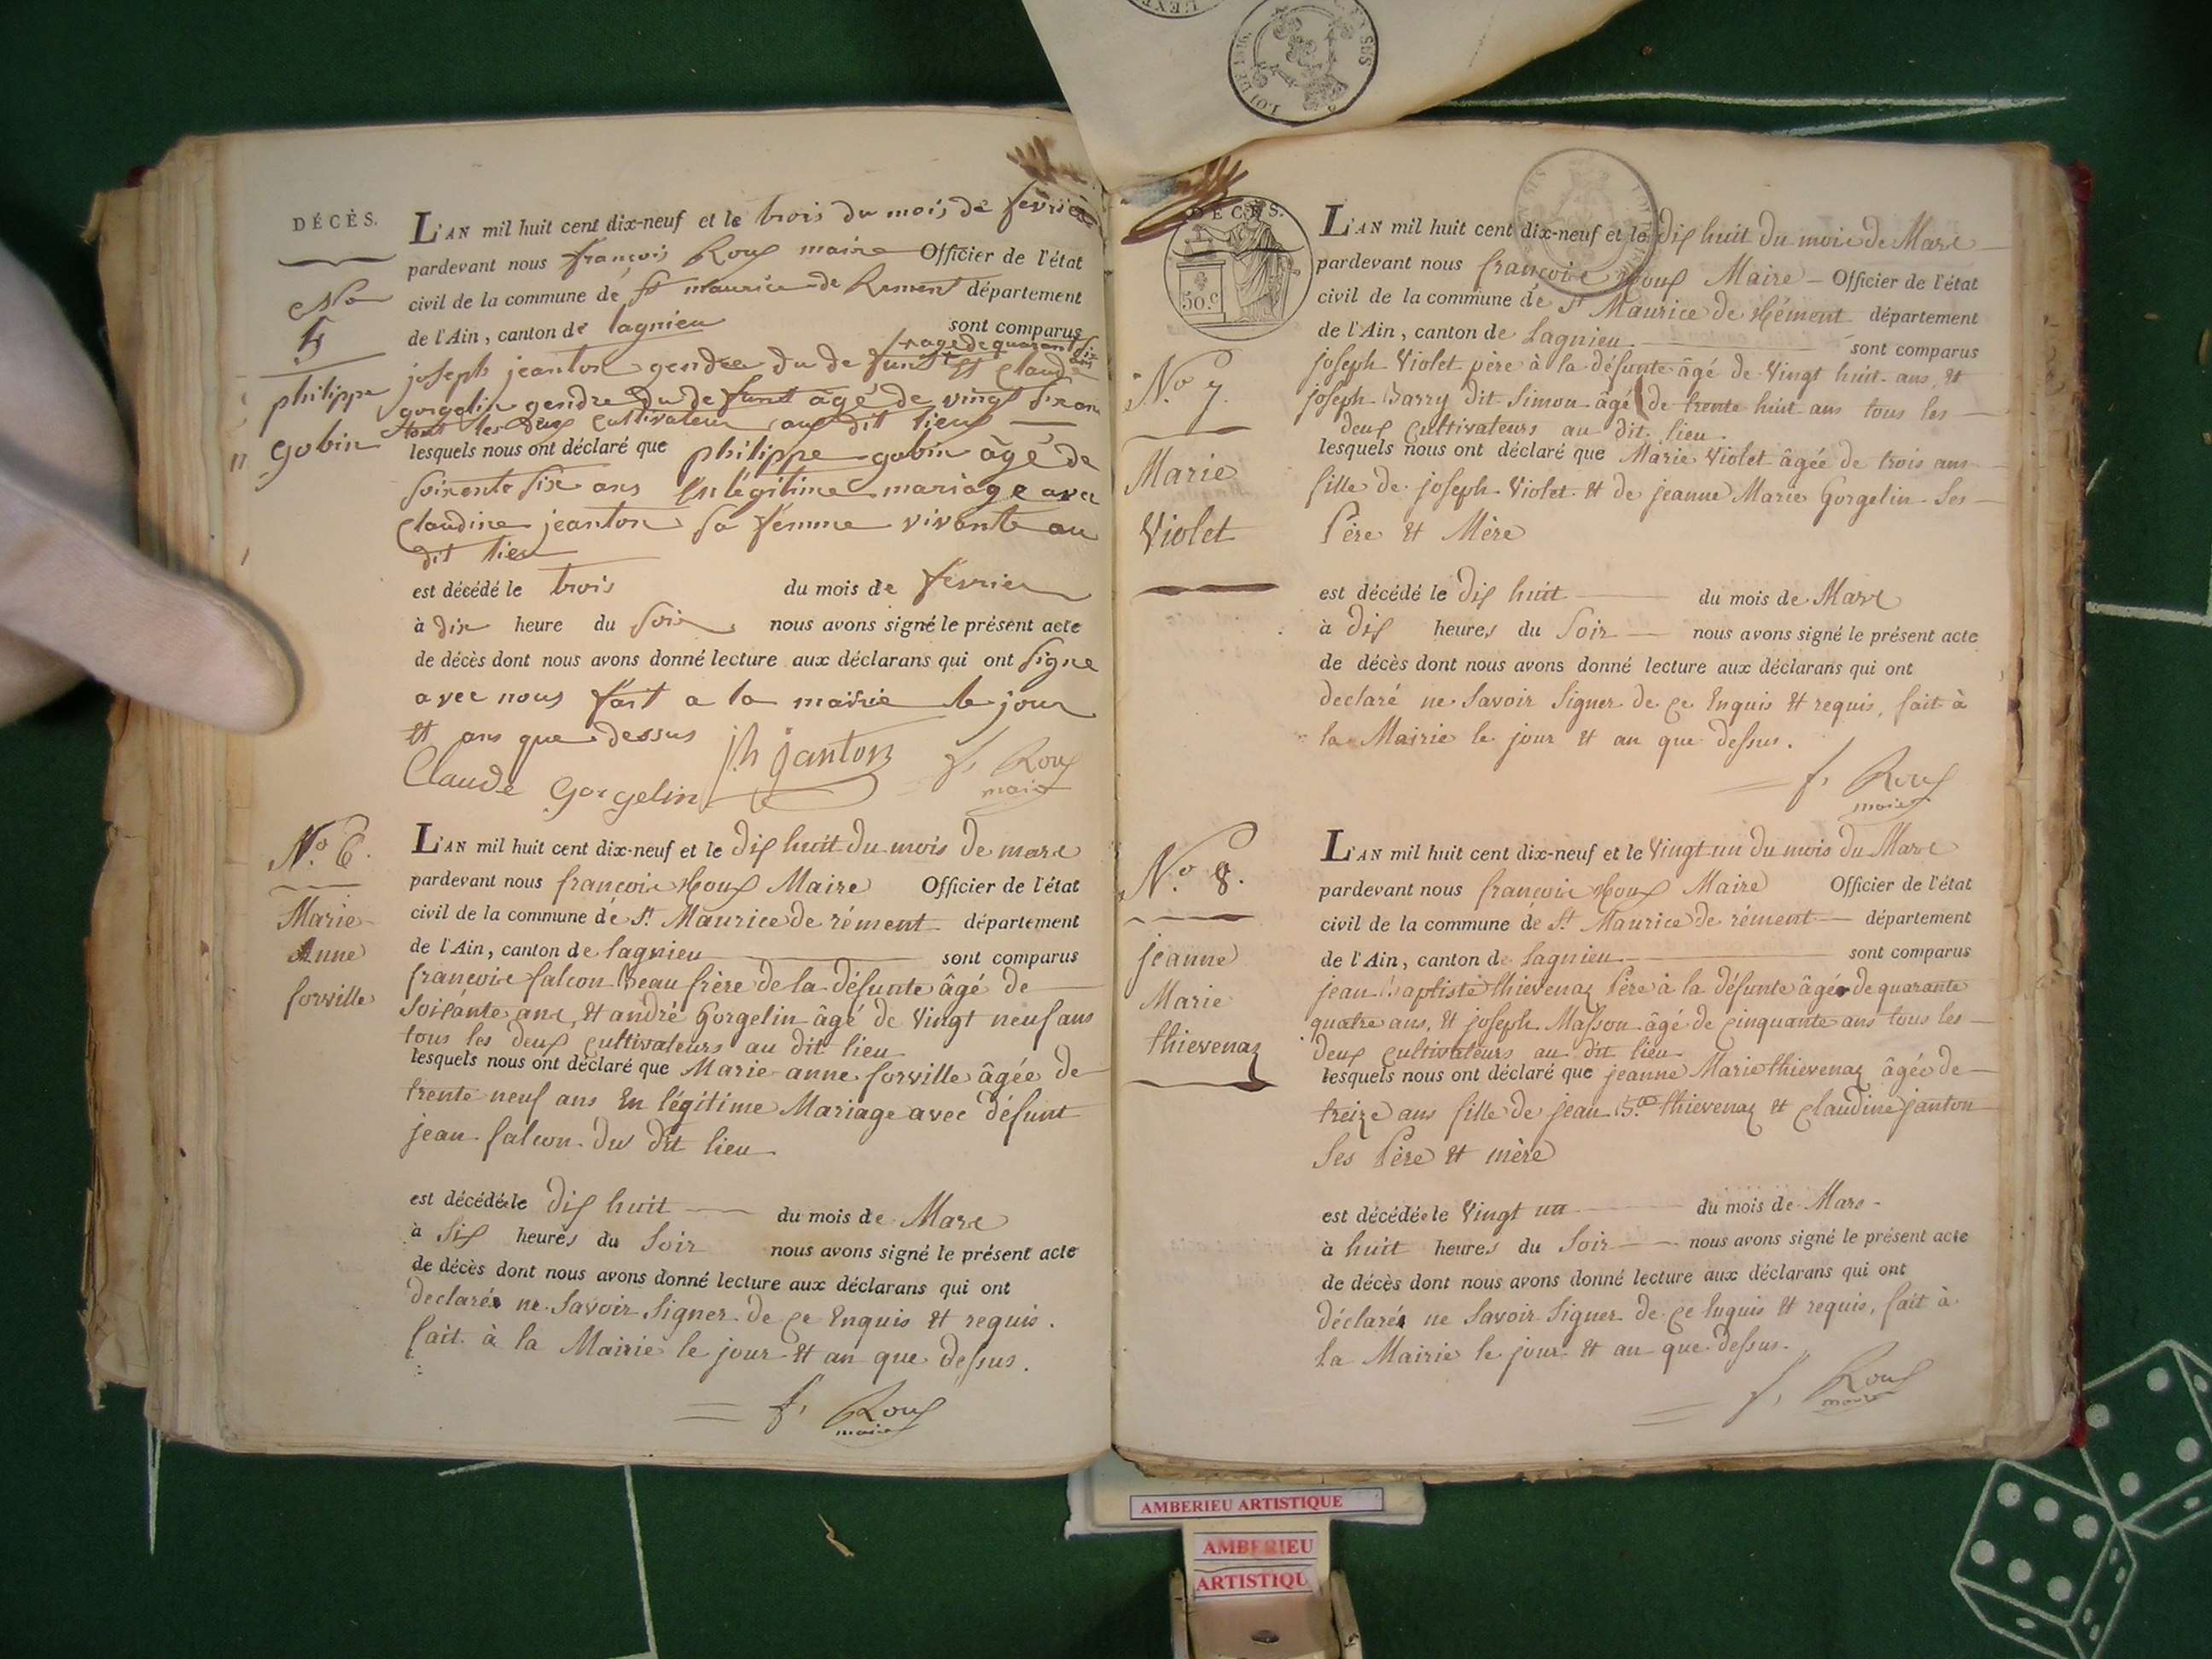 DÉCÈS.
No
5
philippe
gobin
L'AN mil huit cent dix-neuf et le trois du mois de fevrier
pardevant nous françois Roux maire Officier de l'état
civil de la commune de St maurice de Rement département
de l'Ain, canton de lagnieu sont comparus
joseph jeanton gendre du defunt age de quarant six ans et Claude
gorgelin gendre du defunt âgé de vingt six ans
tous les deux cultivateur au dit lieu
lesquels nous ont déclaré que philippe gobin âgé de
soixente six ans En légitime mariage avec
Claudine jeanton sa femme vivente au
dit lieu
est décédé le trois du mois de fevrier
à dix heure du soir nous avons signé le présent acte
de décès dont nous avons donné lecture aux déclarans qui ont signe
avec nous fait a la mairie le jour
et ans que dessus
Claude Gorgelin jh janton f. Roux
maire
No. 6.
Marie
Anne
forville
L'AN mil huit cent dix-neuf et le dix huit du mois de mars
pardevant nous françois Roux Maire Officier de l'état
civil de la commune de St. Maurice de rément département
de l'Ain, canton de lagnieu sont comparus
françois falcon Beau frère de la défunte âgé de
soixante ans, et andré Gorgelin âgé de Vingt neuf ans
tous les deux cultivateurs au dit lieu
lesquels nous ont déclaré que Marie anne forville âgée de
trente neuf ans En légitime Mariage avec défunt
jean falcon du dit lieu
est décédée le dix huit du mois de Mars
à six heures du soir nous avons signé le présent acte
de décès dont nous avons donné lecture aux déclarans qui ont
declarés ne savoir signer de ce Enquis et requis.
fait à la Mairie le jour et an que dessus.
f. Roux
maire
DÉCÈS.
50.c
No. 7.
Marie
Violet
L'AN mil huit cent dix-neuf et le dix huit du mois de Mars
pardevant nous françois Roux Maire Officier de l'état
civil de la commune de St Maurice de Rément département
de l'Ain, canton de Lagnieu sont comparus
joseph Violet père à la défunte âgé de Vingt huit ans, et
joseph Barry dit Simon âgé de trente huit ans tous les
deux cultivateurs au dit lieu.
lesquels nous ont déclaré que Marie Violet âgée de trois ans
fille de joseph Violet et de jeanne Marie Gorgelin ses
Père et Mère
est décédé le dix huit du mois de Mars
à dix heures du soir nous avons signé le présent acte
de décès dont nous avons donné lecture aux déclarans qui ont
declaré ne savoir signer de ce Enquis et requis, fait à
la Mairie le jour et an que dessus.
f. Roux
maire
No. 8.
jeanne
Marie
thievenaz
L'AN mil huit cent dix-neuf et le Vingt un du mois du Mars
pardevant nous françois Roux Maire Officier de l'état
civil de la commune de St Maurice de rément département
de l'Ain, canton de Lagnieu sont comparus
jean Baptiste thievenaz Père à la défunte âgée de quarante
quatre ans, et joseph Masson âgé de cinquante ans tous les
deux cultivateurs au dit lieu
lesquels nous ont déclaré que jeanne Marie thievenaz âgée de
treize ans fille de jean Bte thievenaz et claudine janton
ses Père et mère
est décédée le Vingt un du mois de Mars
à huit heures du soir nous avons signé le présent acte
de décès dont nous avons donné lecture aux déclarans qui ont
déclarés ne savoir signer de ce Enquis et requis, fait à
la Mairie le jour et an que dessus.
f. Roux
maire
LOI DE 1816.
AMBERIEU ARTISTIQUE
AMBERIEU
ARTISTIQU